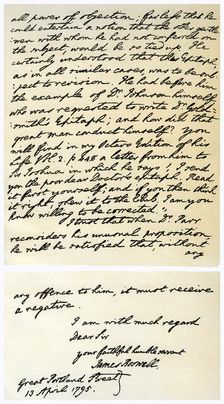 all power of objection; far less that he
could entertain a notion that the other gentle
men with whom he did not confer on
the subject, would be so tied up. He
certainly understood that the Epitaph,
as in all similar cases was to be sub
ject to revision. He had before him
the example of Dr. Johnson himself,
who was requested to write Dr. Gold-
smith's Epitaph; and how did that
great man conduct himself? You
will find in my Octavo Edition of his
Life Vol. 2. p 448 a letter from him to
Sir Joshua in which he says "I send
you the poor dear Doctor's epitaph. Read
it first yourself; and if you then think
it right, shew it to the Club. I am you
know willing to be corrected."
I trust that when Dr. Parr
reconsiders his unusual proposition
he will be satisfied that without
any
any offence to him, it must receive
a negative.
I am with much regard
Dear Sir
your faithful humble servant
James Boswell.
Great Portland Street
13 April 1795.